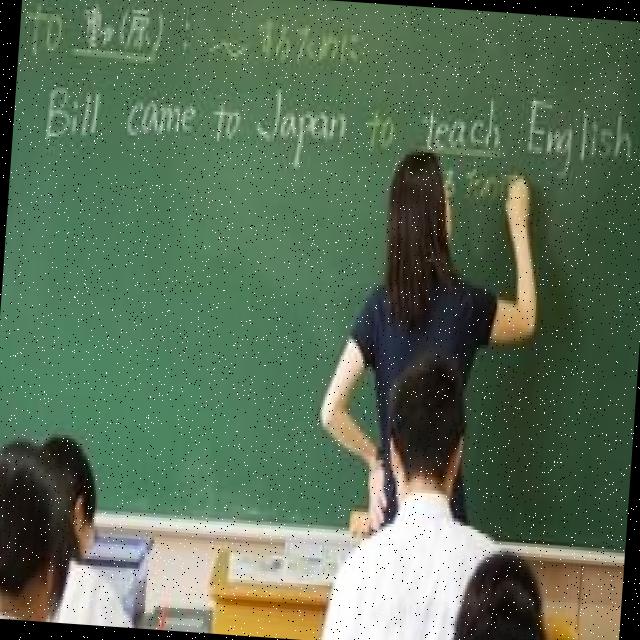 to 動(原) : ～するために
Bill came to Japan to teach English